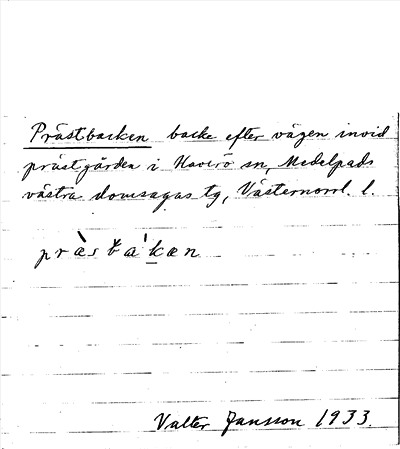 Prästbacken backe efter vägen invid
prästgården i Haverö sn, Medelpads
västra domsagas tg, Västernorrl. l.
præ̀sba̍ḵæn
Valter Jansson 1933.